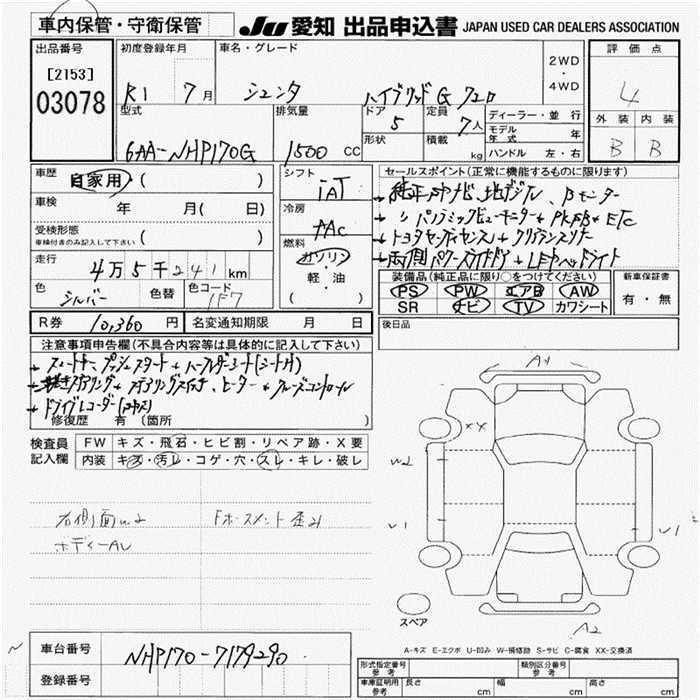 車内保管・守衛保管
JU 愛知 出品申込書 JAPAN USED CAR DEALERS ASSOCIATION
出品番号
[2153]
03078
初度登録年月
R1 7月
車名・グレード
シエンタ ハイブリッドG クエロ
2WD
・
4WD
評価点
4
外装 内装
B B
型式
6AA-NHP170G
排気量
1500 cc
ドア
5
形状
定員
7人
積載
kg
ディーラー・並行
モデル年式 年
ハンドル 左・右
車歴
自家用 ( )
車検
年 月( 日)
受検形態
車検付きのみ記入して下さい ( )
走行
4万5千241km
色
シルバー
色替
色コード
1F7
シフト
IAT
冷房
AAC
燃料
ガソリン
・
軽・油
( )
セールスポイント(正常に機能するものに限ります)
純正ナビ、地デジTV、Bモニター
〃 パノラミックビューモニター + ETC
トヨタセーフティセンス + クリアランスソナー
両側パワースライドドア + LEDヘッドライト
装備品(純正品に限り○をつけてください)
PS PW エアB AW
SR ナビ TV カワシート
新車保証書
有・無
R券 10,360 円
名変通知期限 月 日
後日品
注意事項申告欄(不具合内容等は具体的に記入して下さい)
スマートキー、プッシュスタート + ハーフレザーシート(シートH)
ステアリング + ステアリングスイッチ、ヒーター + クルーズコントロール
ドライブレコーダー
修復歴 有 (箇所 )
検査員
記入欄
FW キズ・飛石・ヒビ割・リペア跡・X要
内装 キズ・汚レ・コゲ・穴・スレ・キレ・破レ
右側面W2
ボディーAU
Fホースメント歪み
A1
XX
W2
U1
U1
A2
スペア
A-キズ E-エクボ U-凹み W-補修跡 S-サビ C-腐食 XX-交換済
車台番号
NHP170-7179290
登録番号
形式指定番号
参考
類別区分番号
参考
車庫証明用
参考
長さ cm
幅 cm
高さ cm